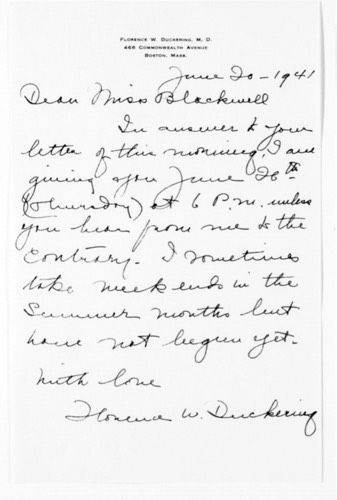 FLORENCE W. DUCKERING, M. D.
466 COMMONWEALTH AVENUE
BOSTON, MASS.
June 20-1941
Dear Miss Blackwell
In answer to your
letter of this morning, I am
giving you June 26th
(Thursday) at 6 P.M. unless
you hear from me to the
contrary. I sometimes
take week ends in the
Summer months but
have not begun yet.
With love
Florence W. Duckering